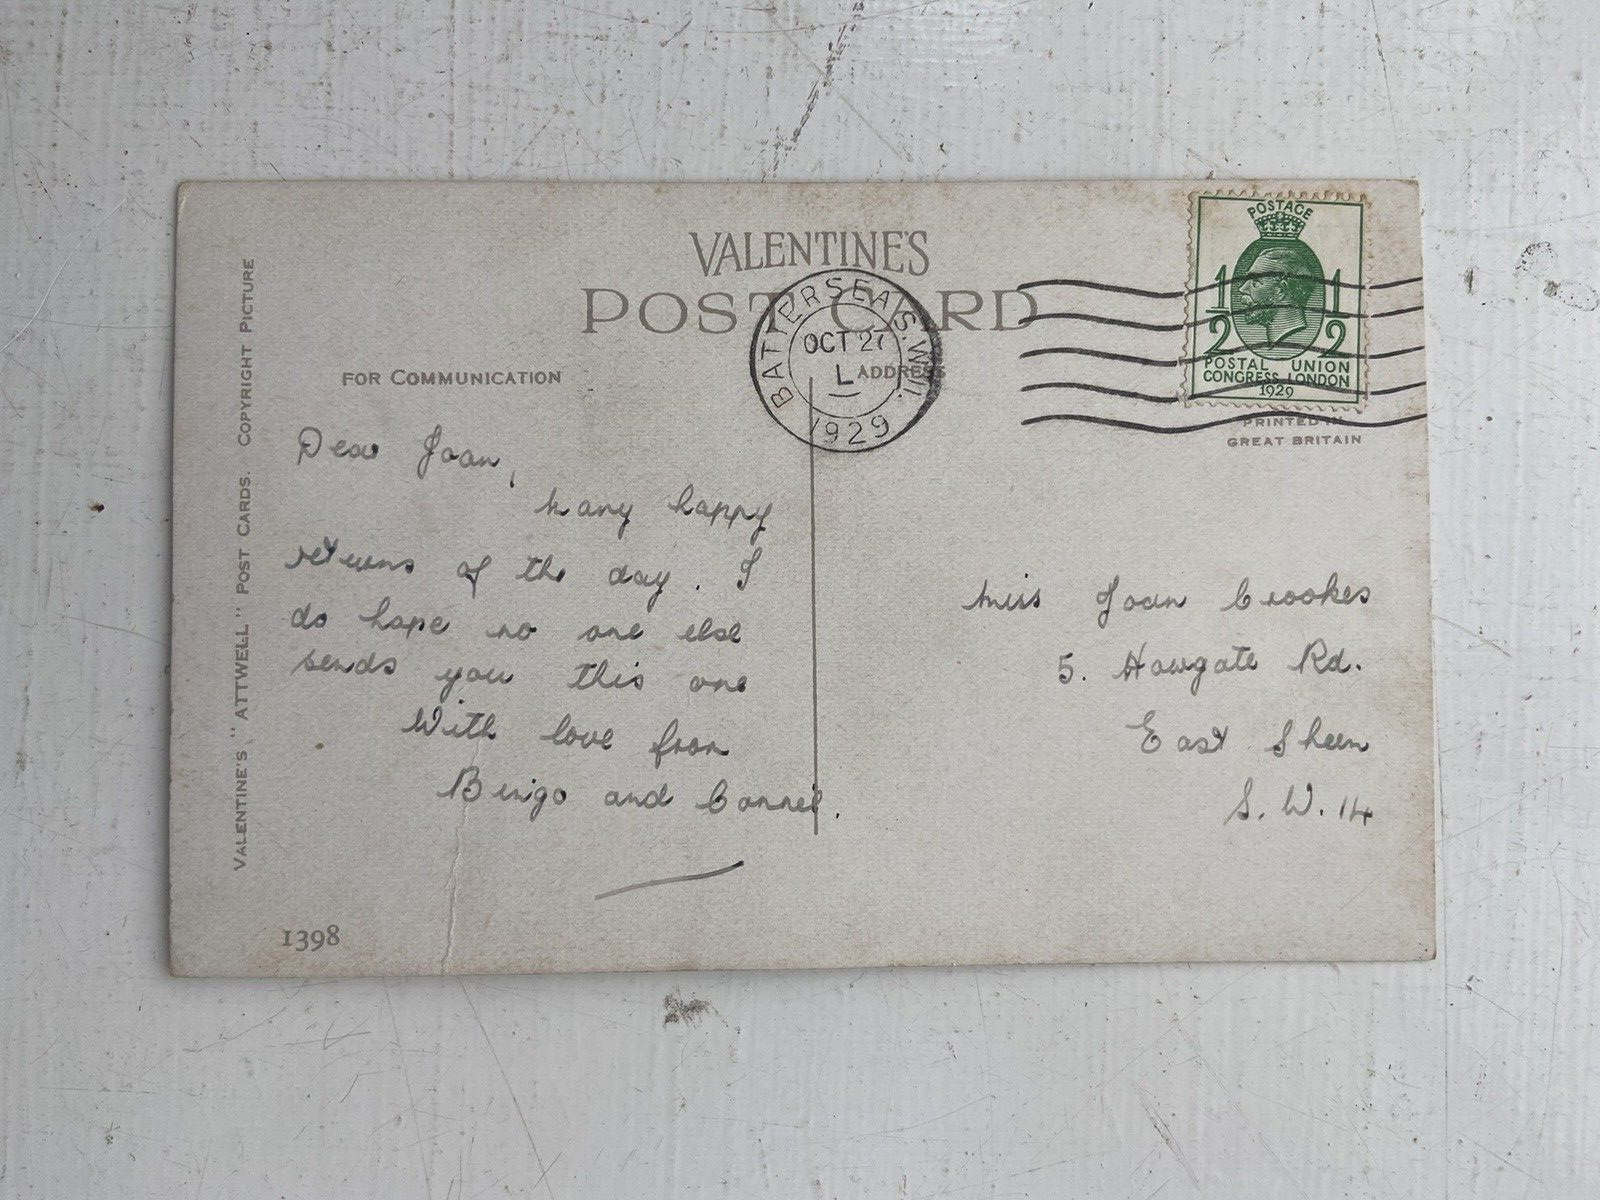 VALENTINE'S
POST CARD
VALENTINE'S "ATTWELL" POST CARDS. COPYRIGHT PICTURE
FOR COMMUNICATION
ADDRESS
BATTERSEA S.W.11.
OCT 27
L
1929
POSTAGE
1/2 1/2
POSTAL UNION
CONGRESS LONDON
1929
PRINTED IN
GREAT BRITAIN
Dear Joan,
Many happy
returns of the day. I
do hope no one else
sends you this one
With love from
Bingo and
Miss Joan Crookes
5. Howgate Rd.
East Sheen
S. W. 14
1398